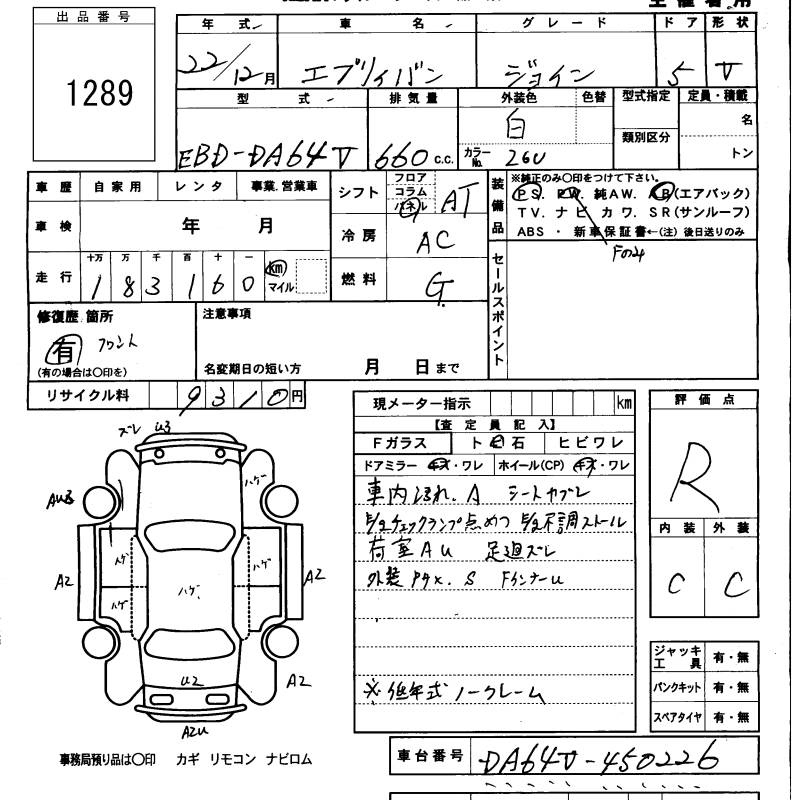 出品番号
1289
年式 車名 グレード ドア 形状
22/12月 エブリイバン ジョイン 5 V
型式 排気量 外装色 色替 型式指定 定員・積載
EBD-DA64V 660c.c. 白 名
カラーNo. 26U 類別区分 トン
車歴 自家用 レンタ 事業.営業車
車検 年 月
走行 十万 万 千 百 十 一
183160 km マイル
シフト フロア コラム パネル AT
冷房 AC
燃料 G
装備品
※純正のみ○印をつけて下さい。
PS. PW. 純AW. AB(エアバック)
TV. ナビ カワ. SR(サンルーフ)
ABS ・ 新車保証書←(注) 後日送りのみ
Fのみ
セールスポイント
修復歴 箇所
有 フロント
(有の場合は○印を)
注意事項
名変期日の短い方 月 日まで
リサイクル料 9310円
現メーター指示 km
【査定員記入】
Fガラス ト 石 ヒビワレ
ドアミラー キズ・ワレ ホイール(CP) キズ・ワレ
車内よごれ. A シートヤブレ
E/gチェックランプ点めつ E/g不調ストール
荷室AU 足廻ズレ
外装 Pキズ. S FインナーU
※低年式 ノークレーム
評価点
R
内装 外装
C C
ズレ U3
ハゲ
AU3
ハゲ ハゲ
A2 ハゲ A2
ハゲ
U2 A2
A2U
ジャッキ工具 有・無
パンクキット 有・無
スペアタイヤ 有・無
事務局預り品は○印 カギ リモコン ナビロム
車台番号 DA64V-450226